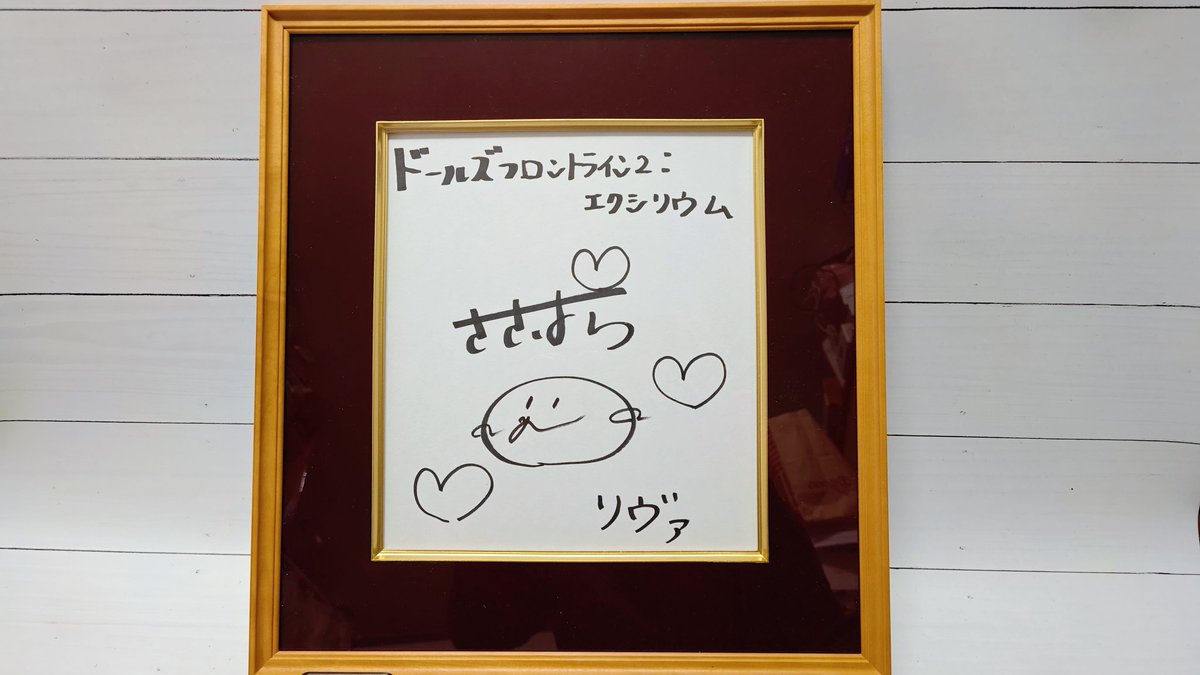 ドールズフロントライン2:
エクシリウム
ささはら
リヴァ